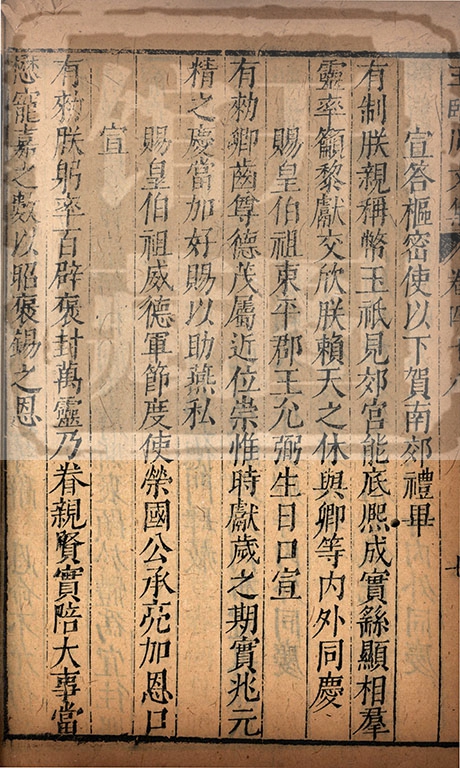 王臨川文集 卷四十八
宣答樞密使以下賀南郊禮畢
有制朕親稱幣玉祗見郊宮能底熙成實繇顯相羣
靈率籲黎獻交欣朕賴天之休與卿等內外同慶
賜皇伯祖東平郡王允弼生日口宣
有勑卿齒尊德茂屬近位崇惟時獻歲之期實兆元
精之慶當加好賜以助燕私
賜皇伯祖威德軍節度使榮國公承亮加恩口
宣
有勑朕躬率百辟裒封萬靈乃眷親賢實陪大事當
懋寵嘉之數以昭褒錫之恩